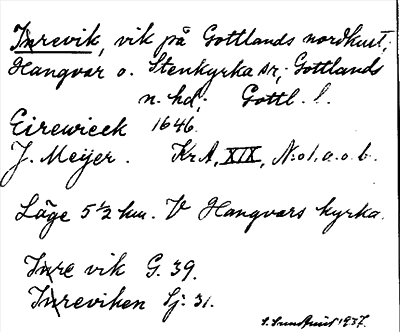 Inrevik, vik på Gottlands nordkust,
Hangvar o. Stenkyrka sr, Gottlands
n. hd; Gottl. l.
Eirewieck 1646.
J. Meijer. Kr A, XIX, N:o 1, a. o. b.
Läge 5 1/2 km. V Hangvars kyrka.
Inre vik G. 39.
Inreviken Sj: 31.
S. Sundqvist 1937.